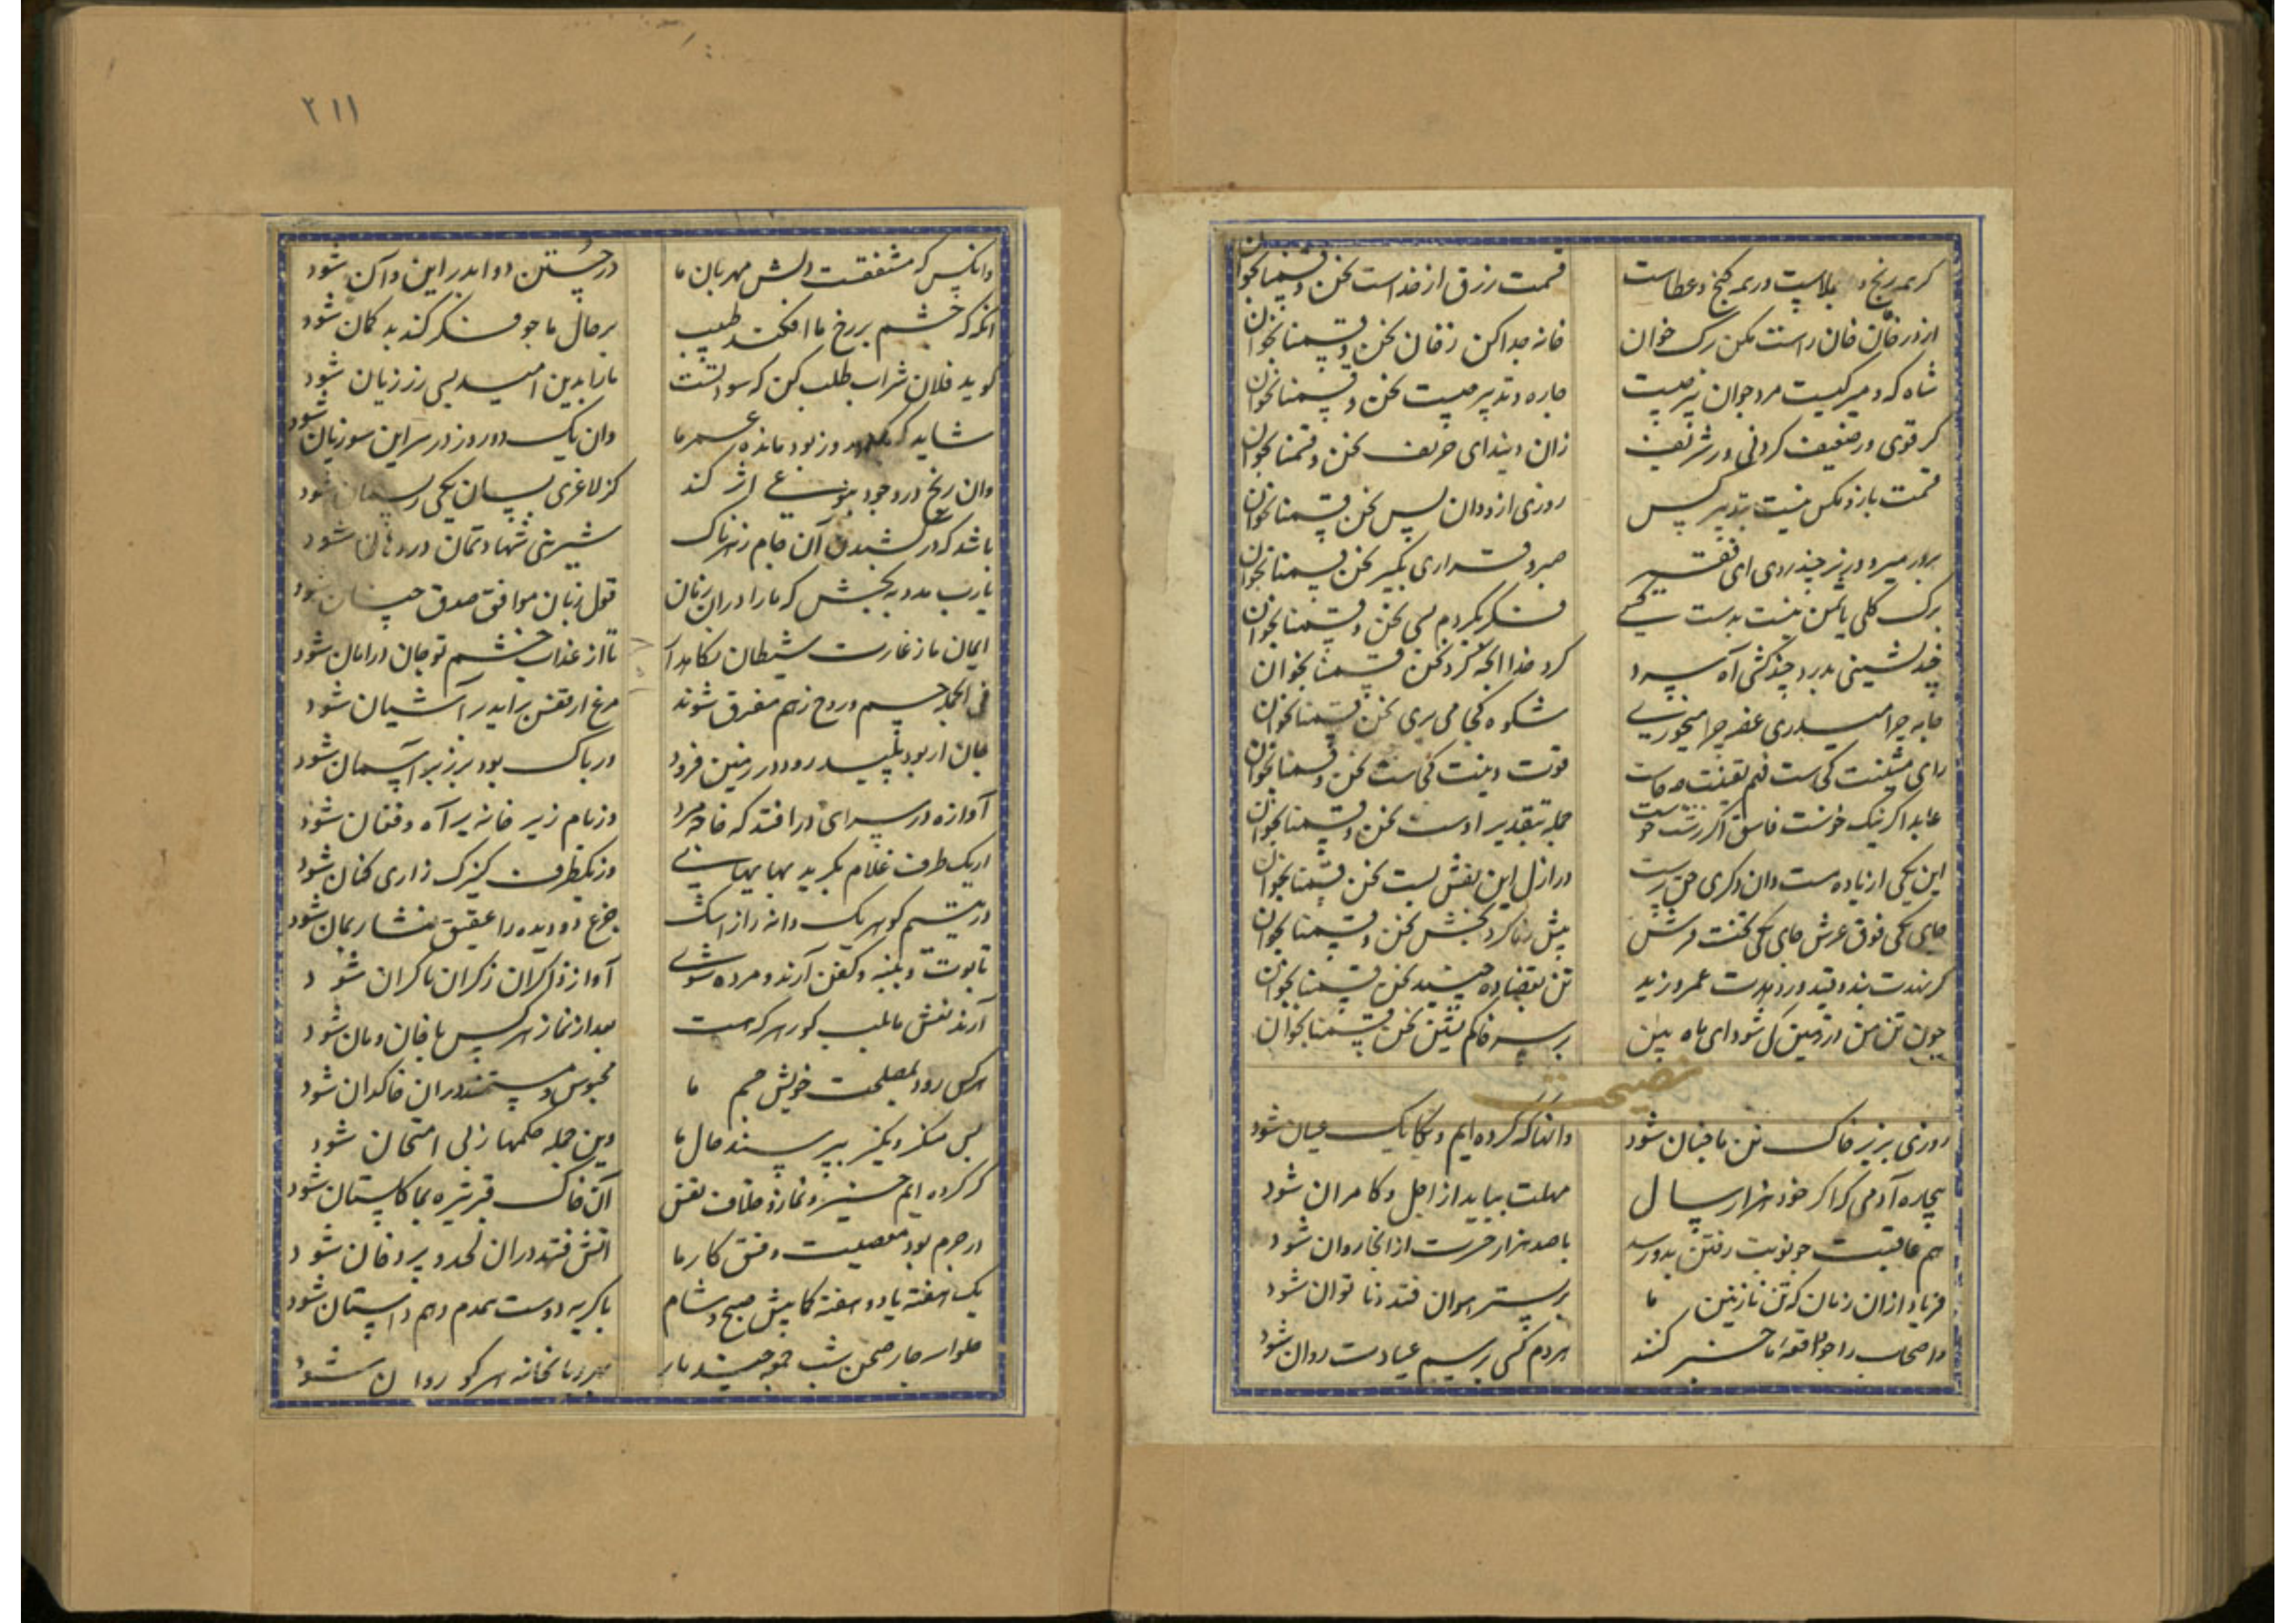 گر همه رنج و بلاست ور همه گنج و عطاست قسمت رزق از خداست نحن قسمنا بخوان
از در خان خان راست مکن رک خوان خانه جدا کن ز خان نحن قسمنا بخوان
شاه که و میر کیست مرد جوان پیر چیست چاره و تدبیر چیست نحن قسمنا بخوان
گر قوی ور ضعیف گر دنی ور شریف زان و بیند ای حریف نحن قسمنا بخوان
قسمت باز و مکس نیست بتدبیر کس روزی از دوان پس نحن قسمنا بخوان
در بدر میر و وزیر چند روی ای فقیر صبر و قراری بگیر نحن قسمنا بخوان
برگ گلی یاسمن نیست بدست کسی فکر بکردم بسی نحن قسمنا بخوان
چند نشینی بدرد چند کشی آه سرد کرد خدا آنچه کرد نحن قسمنا بخوان
جامه چرا میدری غصه چرا میخوری شکوه کجا می بری نحن قسمنا بخوان
رای متینت کجاست فهم یقینت کجاست قوت دینت کجاست نحن قسمنا بخوان
عابد اگر نیک خوست فاسق اگر زشت خوست جمله بتقدیر اوست نحن قسمنا بخوان
این یکی از باده مست وان دگری حق پرست در ازل این نقش بست نحن قسمنا بخوان
جای یکی فوق عرش جای یکی تحت فرش پیش بخش نحن قسمنا بخوان
گر نهدت بند و قید ور دهدت عمرو زید تن بقضا ده نحن قسمنا بخوان
چون تن من در زمین گل شود ای ماه بین بر سر خاکم نشین نحن قسمنا بخوان
نصیحت
روزی بزیر خاک تن ما نهان شود وانها که کرده ایم یکایک عیان شود
بیچاره آدمی که اگر خود هزار سال مهلت بیابد از اجل و کامران شود
هم عاقبت چو نوبت رفتن بدو رسد با صد هزار حسرت از اینجا روان شود
فریاد از آن زمان که تن نازنین ما بر بستر هوان فتد و ناتوان شود
واصحاب را چو واقعه ما خبر کنند هر دم کسی برسم عیادت روان شود
۲۱۱
وانکس که مشفقست دلش مهربان ما در جستن دوا بدر این و آن شود
آنگه که چشم بر رخ ما افکند طبیب بر حال ما چو فکر کند بد گمان شود
گوید فلان شراب طلب کن که سود تست ما را بدین امید بسی رز زیان شود
شاید که یک دو روز دگر مانده عمر ما وان یک دو روز در سر این سود و زیان شود
وان رنج در وجود بنوعی اثر کند کز لاغری بسان یکی ریسمان شود
باشد که در کشیدن آن جام زهرناک شیرینی شهادتمان در دهان شود
یا رب مدد ببخش که ما را در آن زمان قول زبان موافق صدق جنان شود
ایمان ما ز غارت شیطان نگاهدار تا از عذاب خشم تو جان در امان شود
فی الجمله جسم و روح ز هم مفرق شوند مرغ از قفس برآید در آشیان شود
جان ار بود پلید رود در زمین فرود ور پاک بود بر زبر آسمان شود
آوازه در سرای در افتد که خواجه مرد وز بام زیر خانه پر آه و فغان شود
از یک طرف غلام بگرید بهایهای وز یکطرف کنیزک زاری کنان شود
در یتیم گوهر یک دانه را ز اشک جزع دو دیده را عقیق فشان شود
تابوت و پنبه و کفن آرند و مرده شوی آواز ذاکران ز کران تا کران شود
آرند نعش ما بلب گور و هر که هست بعد از نماز هر کس با خان و مان شود
هر کس رود بمصلحت خویش و جسم ما محبوس و مستمند در آن خاکدان شود
پس منکر و نکیر بپرسند حال ما وین جمله حکمها ز پی امتحان شود
گر کرده ایم خیر و نماز و خلاف نفس آن خاک قبر تیره بما گلستان شود
ور جرم بود معصیت و فسق کار ما آتش فتد در آن لحد و پر دخان شود
یک هفته یا دو هفته کمابیش صبح و شام با گریه دوست همدم و هم داستان شود
حلوا سه چار صحن شب جمعه چند بار بهر ریا بخانه هر گور روان شود